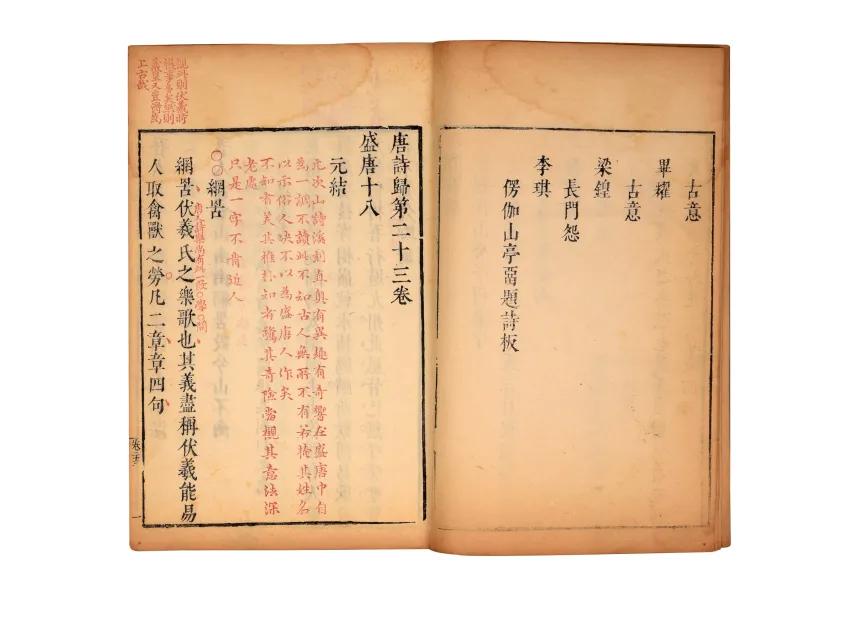 古意
畢耀
古意
梁鍠
長門怨
李琪
楞伽山亭畱題詩板
唐詩歸第二十三卷
盛唐十八
元結
元次山詩溪刻直奧有異趣有奇響在盛唐中自
爲一調不讀此不知古人無所不有若掩其姓名
以示俗人决不以爲盛唐人作矣
不知者笑其稚朴知者驚其奇險當觀其意法深
老處
只是一字不肯近人
網罟
尚有此一段
網罟伏羲氏之樂歌也其義盡稱伏羲能易
人取禽獸之勞凡二章章四句
觀此則伏羲時
機事則
羲皇又豈得爲
上古哉